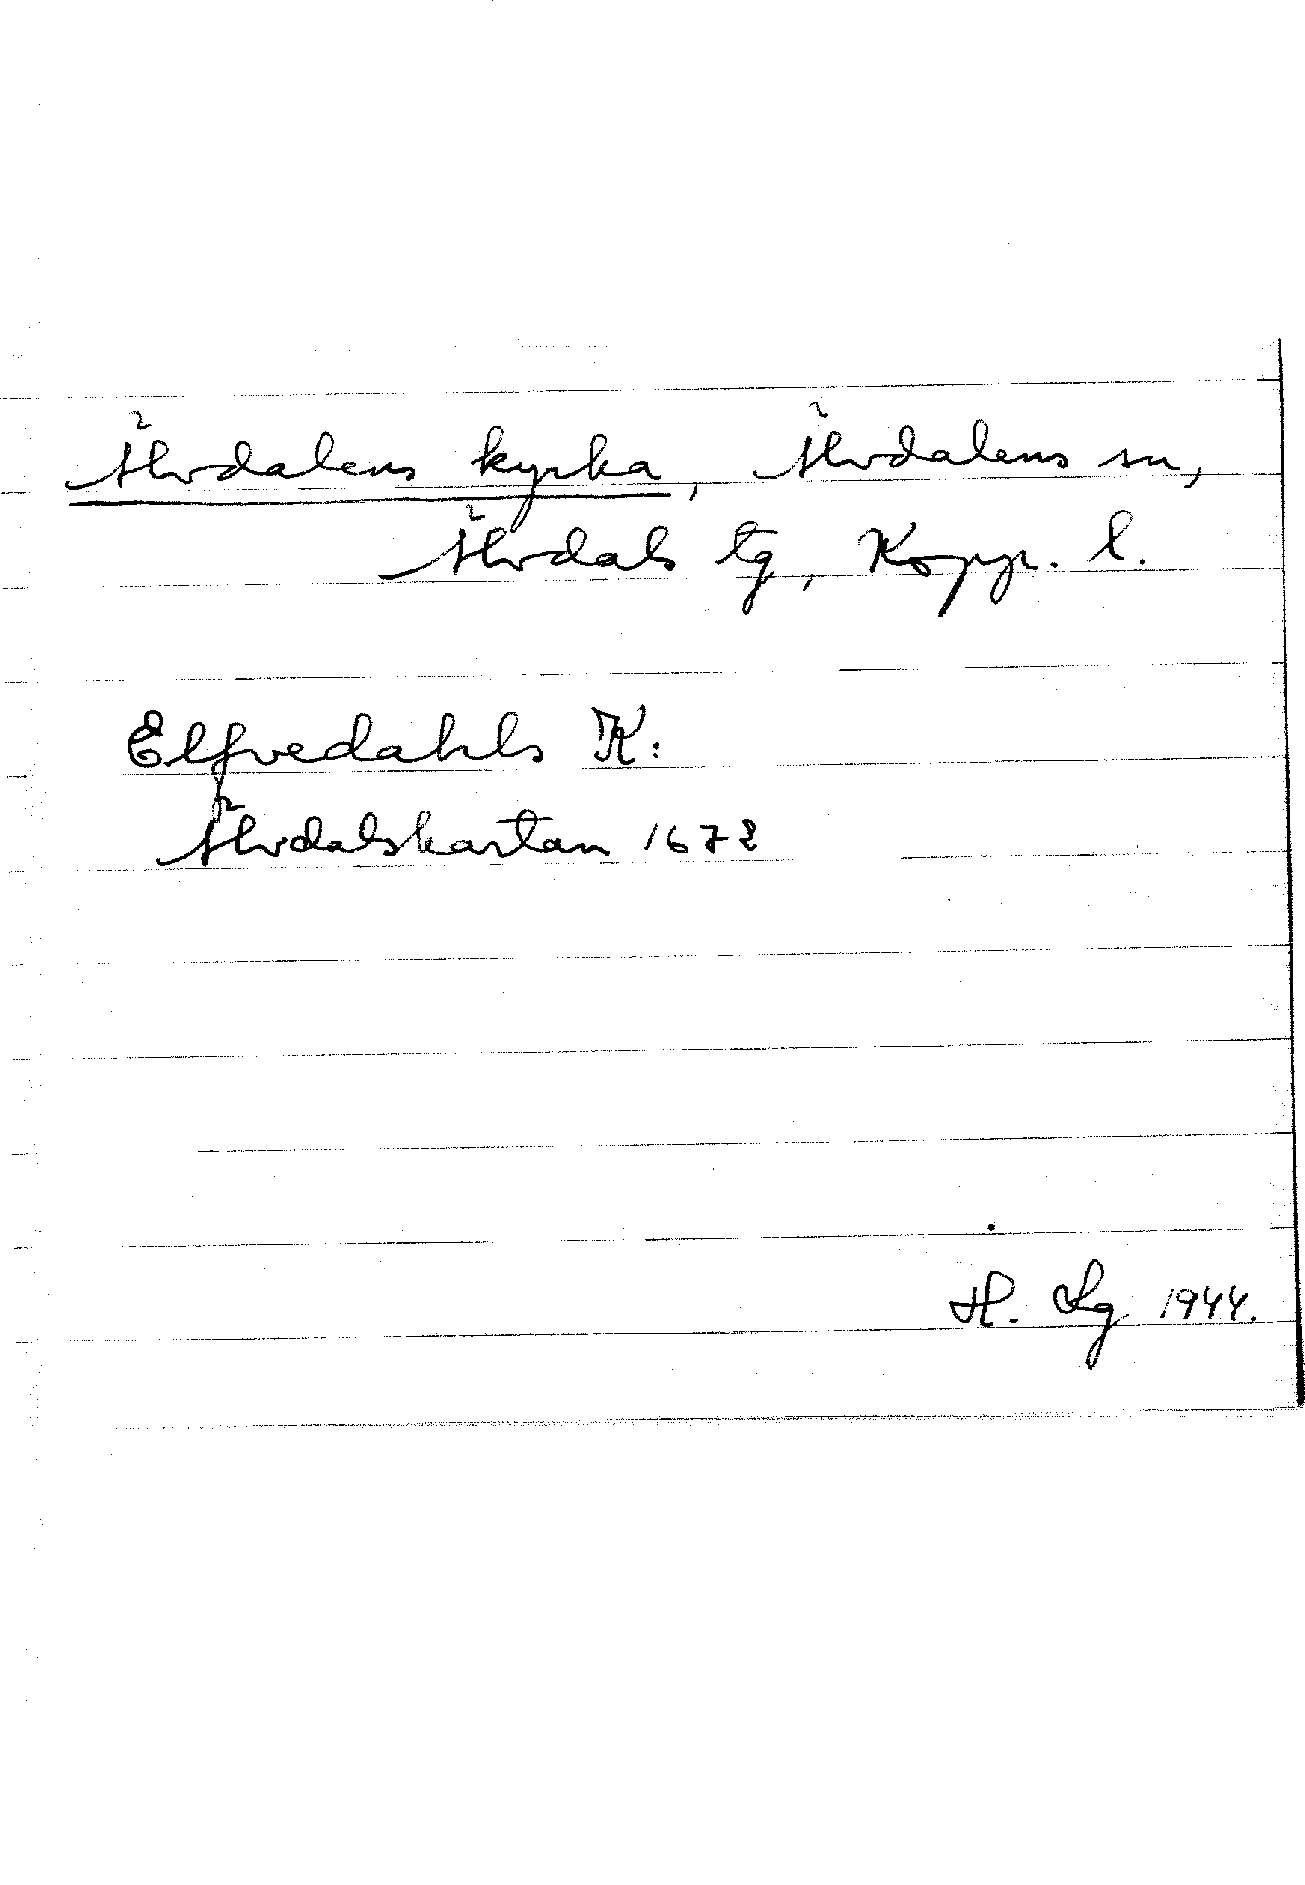 Älvdalens kyrka, Älvdalens sn,
Älvdals tg, Kopp. l.
Elfvedahls K:
Älvdalskartan 1672
H. Lg 1944.